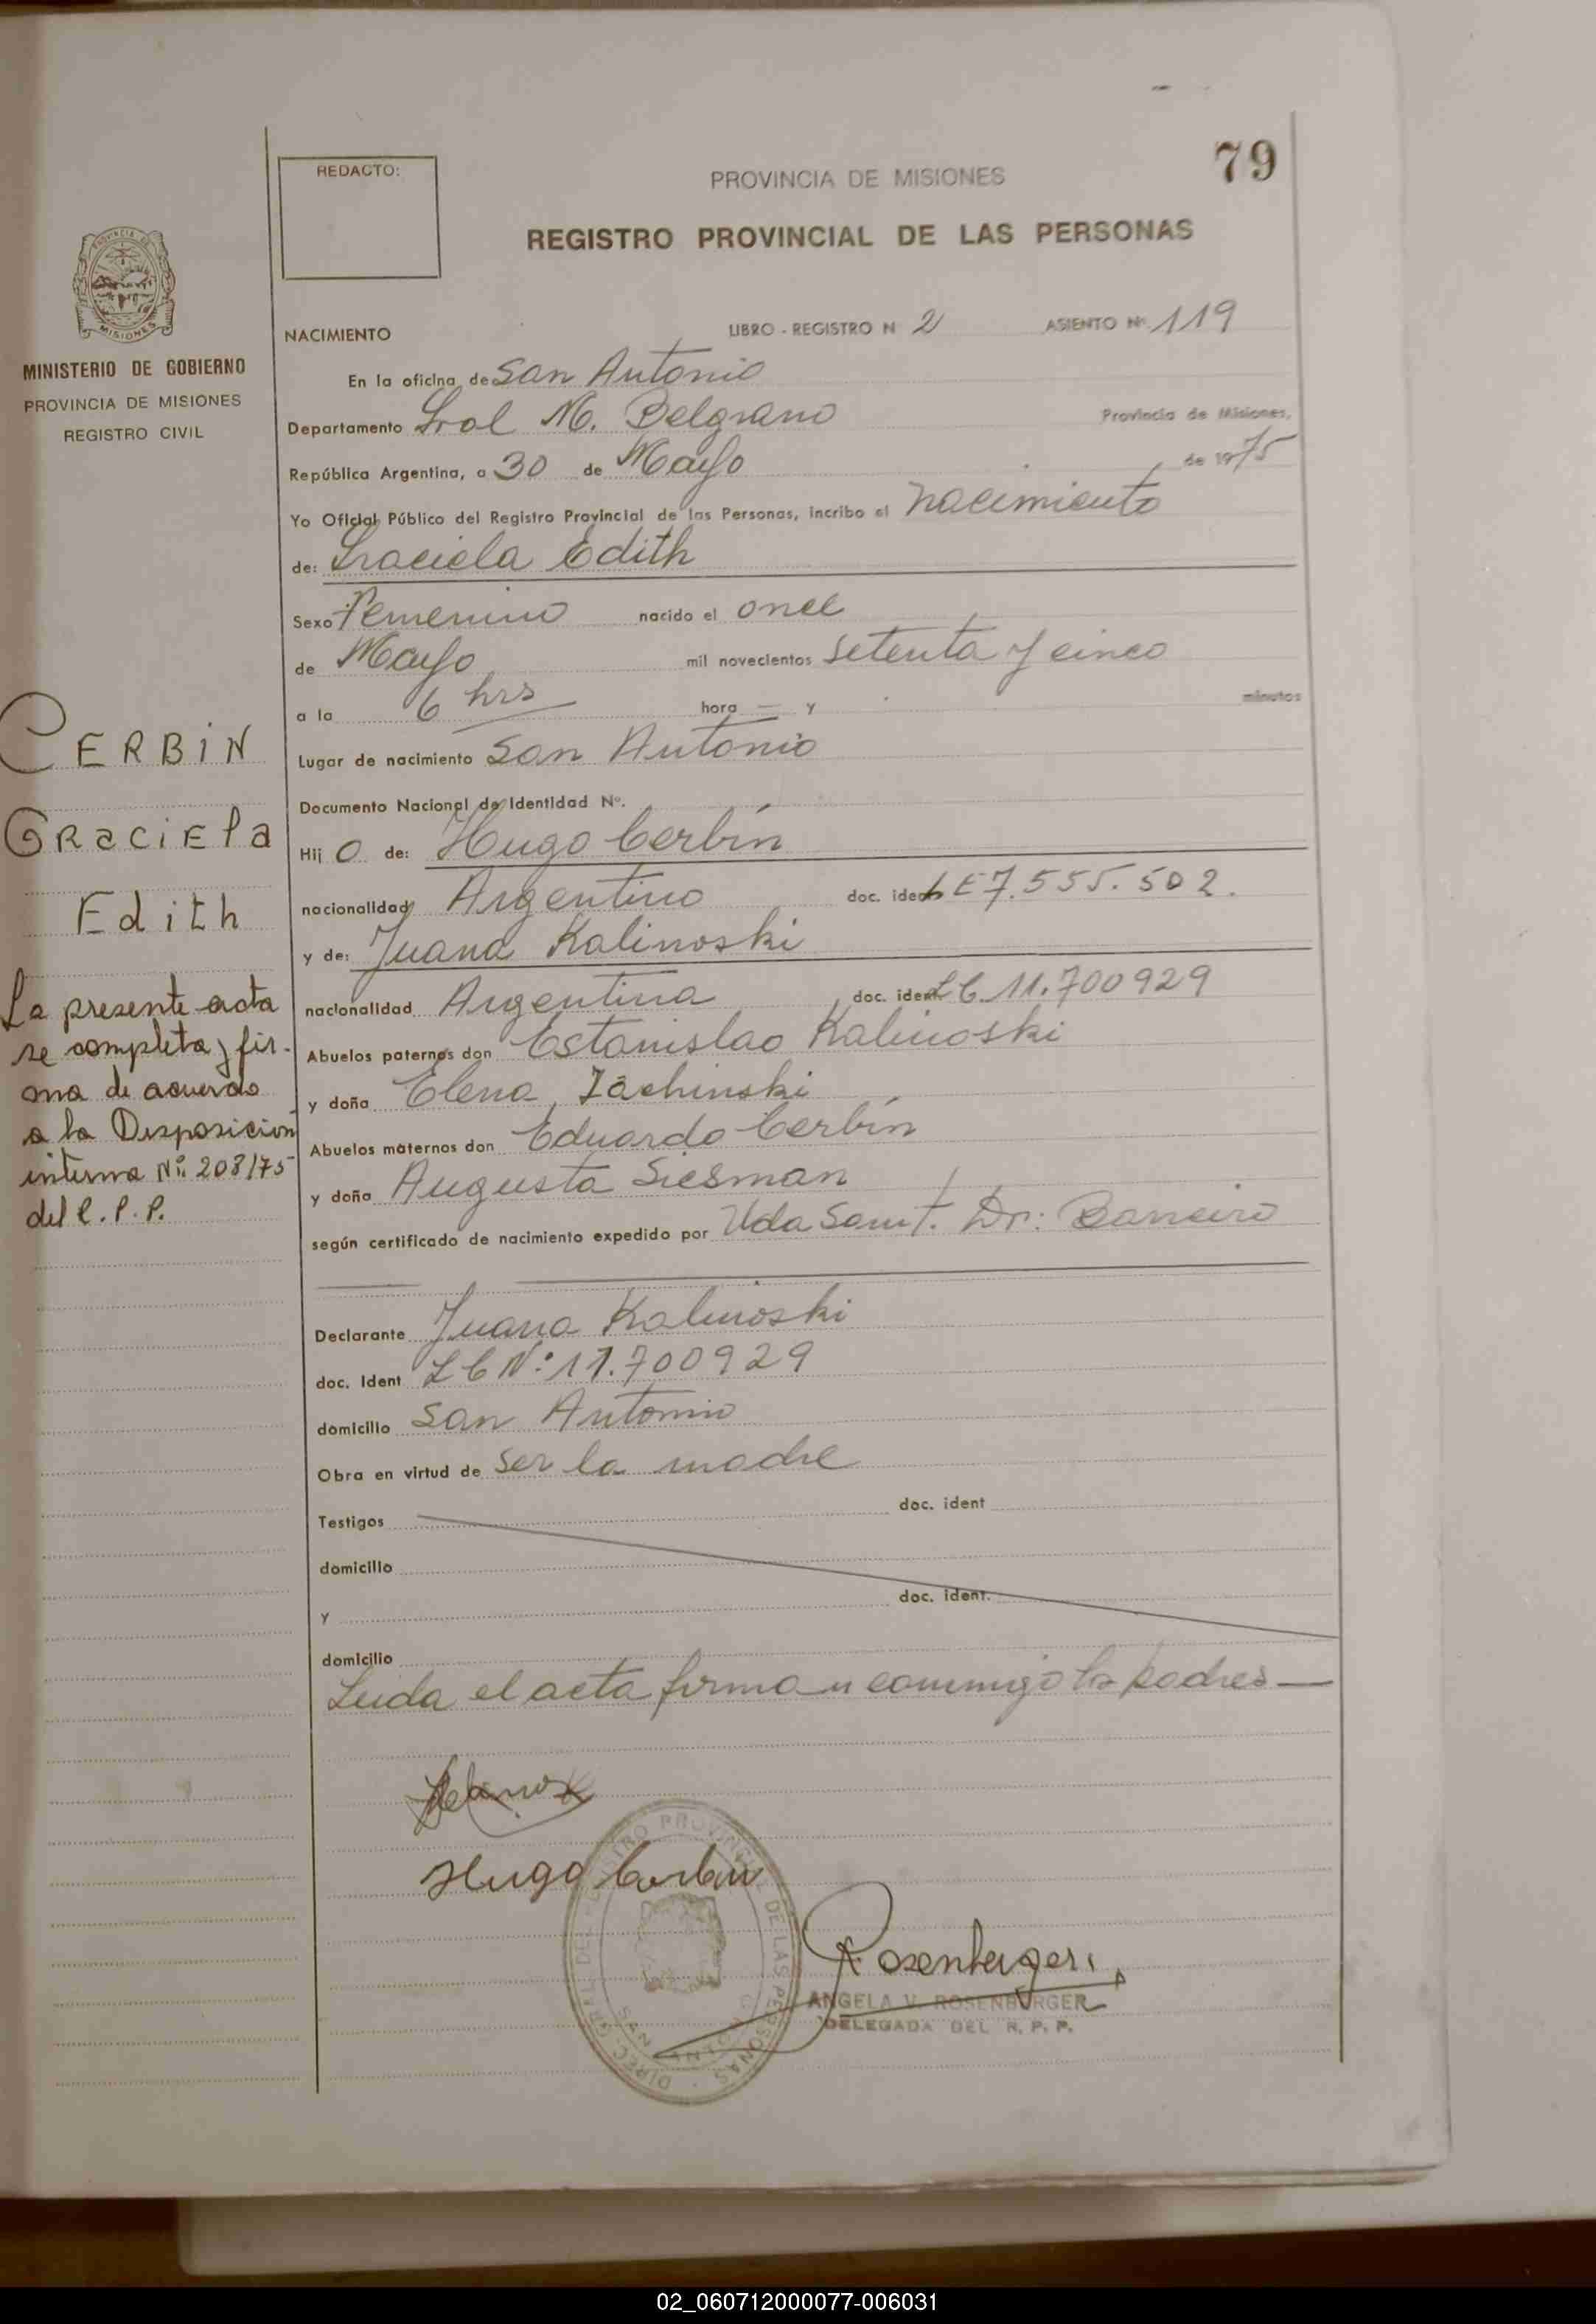 79
REDACTO:
PROVINCIA DE MISIONES
REGISTRO PROVINCIAL DE LAS PERSONAS
PROVINCIA DE
MISIONES
MINISTERIO DE GOBIERNO
PROVINCIA DE MISIONES
REGISTRO CIVIL
NACIMIENTO LIBRO - REGISTRO N 2 ASIENTO Nº 119
En la oficina de San Antonio
Departamento Gral M. Belgrano Provincia de Misiones,
República Argentina, a 30 de Mayo de 1975
Yo Oficial Público del Registro Provincial de las Personas, incribo el nacimiento
de: Graciela Edith
Sexo Femenino nacido el once
de Mayo mil novecientos setenta y cinco
a la 6 hrs hora — y minutos
Lugar de nacimiento San Antonio
Documento Nacional de Identidad Nº.
Hij O de: Hugo Cerbín
nacionalidad Argentino doc. ident LE 7.555.502.
y de: Juana Kalinoski
nacionalidad Argentina doc. ident. LC 11.700929
Abuelos paternos don Estanislao Kalinoski
y doña Elena Záchinski
Abuelos maternos don Eduardo Cerbín
y doña Augusta Siesman
según certificado de nacimiento expedido por Uda Sanit. Dr: Barreiro
Declarante Juana Kalinoski
doc. Ident LC Nº 11.700929
domicilio San Antonio
Obra en virtud de ser la madre
Testigos doc. ident
domicilio
y doc. ident.
domicilio
Leida el acta firman conmigo los padres —
CERBIN
GRaciEla
Edith
La presente acta
se completa y fir-
ma de acuerdo
a la Disposición
interna Nº 208/75
del R.P.P.
Hugo Cerbin
DIREC. GRAL. DEL REGISTRO PROVINCIAL DE LAS PERSONAS
SAN ANTONIO
Rosenberger
ANGELA V. ROSENBERGER
DELEGADA DEL R. P. P.
02_060712000077-006031